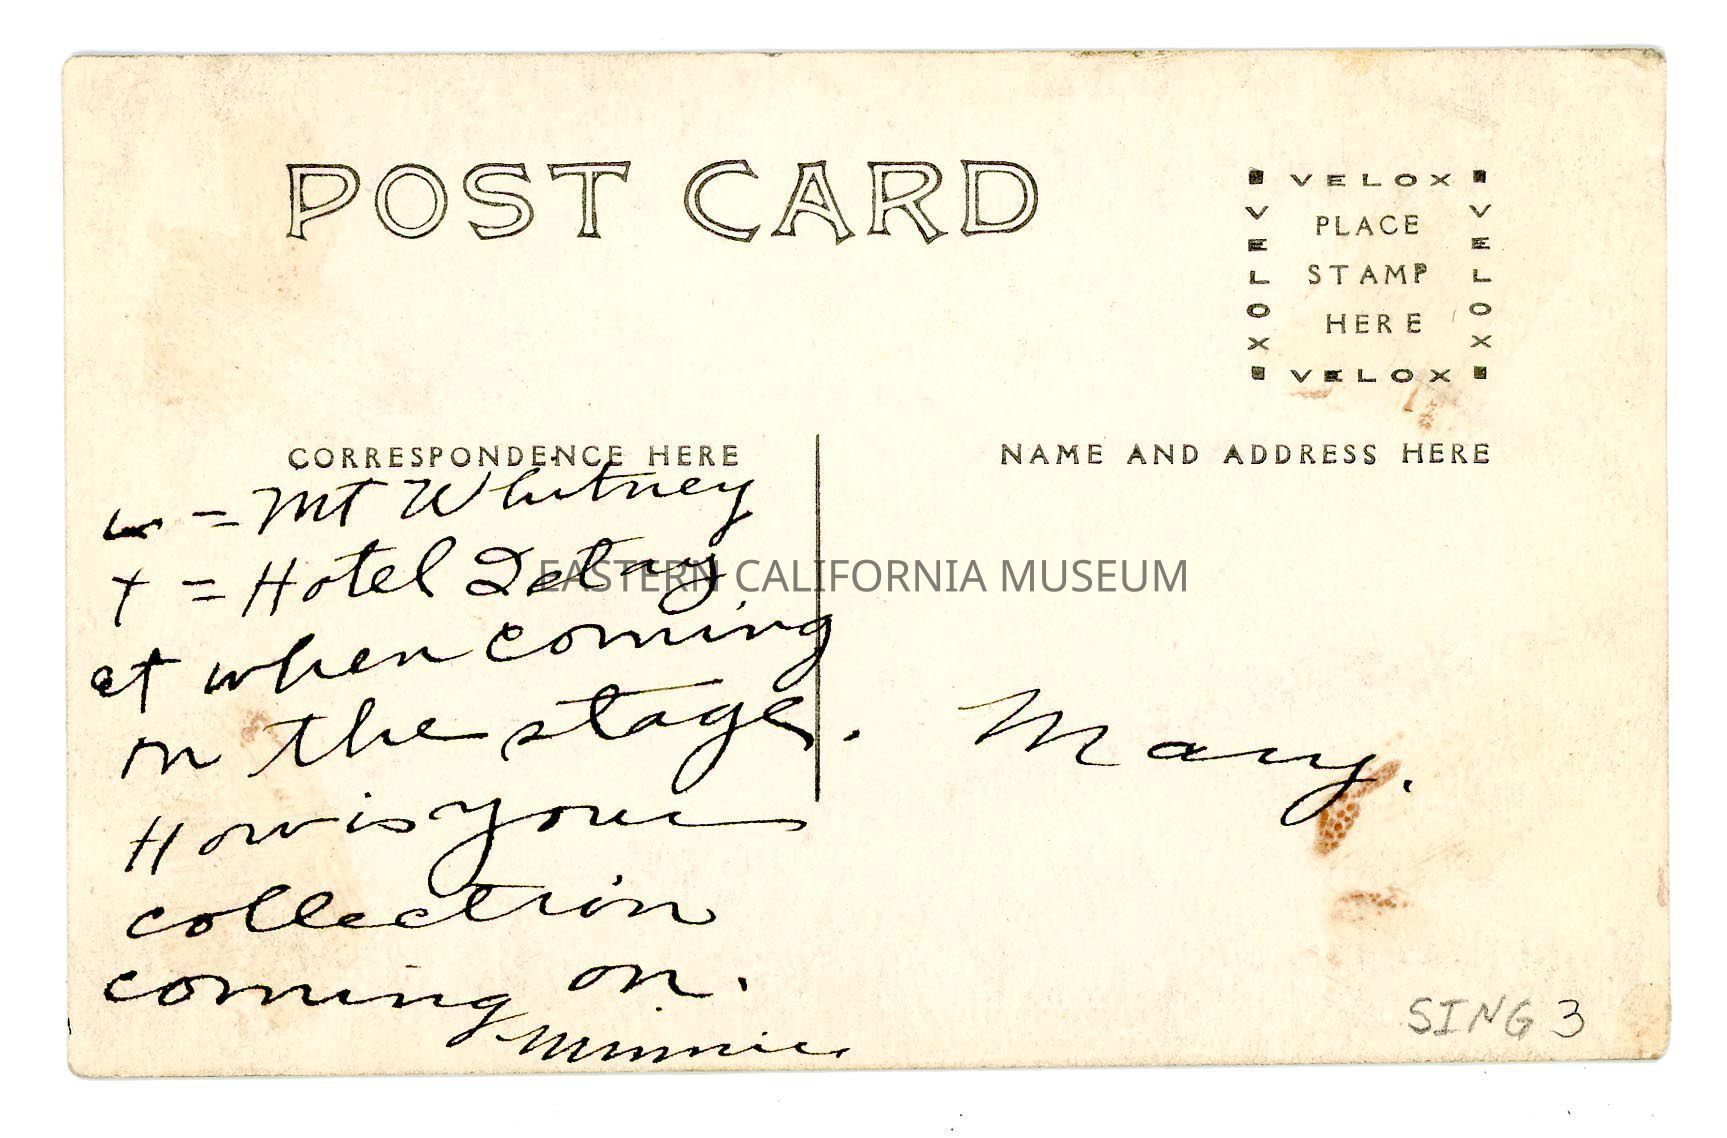 POST CARD
VELOX
VELOX
VELOX
PLACE
STAMP
HERE
VELOX
CORRESPONDENCE HERE
NAME AND ADDRESS HERE
w = Mt Whitney
+ = Hotel I stay
at when coming
on the stage.
How is your
collection
coming on.
Minnie
Mary.
EASTERN CALIFORNIA MUSEUM
SING 3